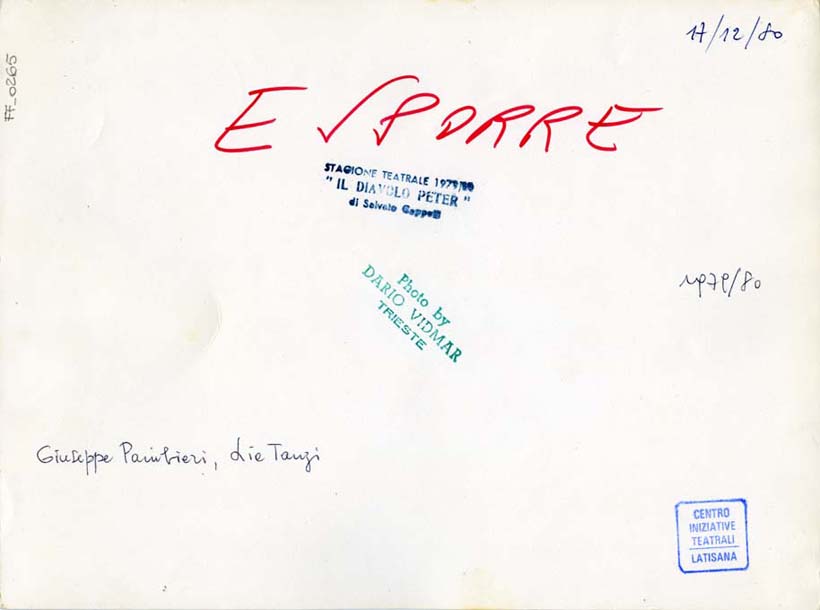 17/12/80
FF_0265
ESPORRE
STAGIONE TEATRALE 1979/80
"IL DIAVOLO PETER"
di Salvato Cappelli
1979/80
Photo by
DARIO VIDMAR
TRIESTE
Giuseppe Pambieri, Lia Tanzi
CENTRO
INIZIATIVE
TEATRALI
LATISANA